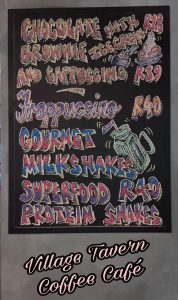 CHOCOLATE WITH R28
BROWNIE ICECREAM
AND CAPPUCCINO R39
Frappuccino R40
GOURMET
MILKSHAKES
SUPERFOOD R40
PROTEIN SHAKES
Village Tavern
Coffee Café